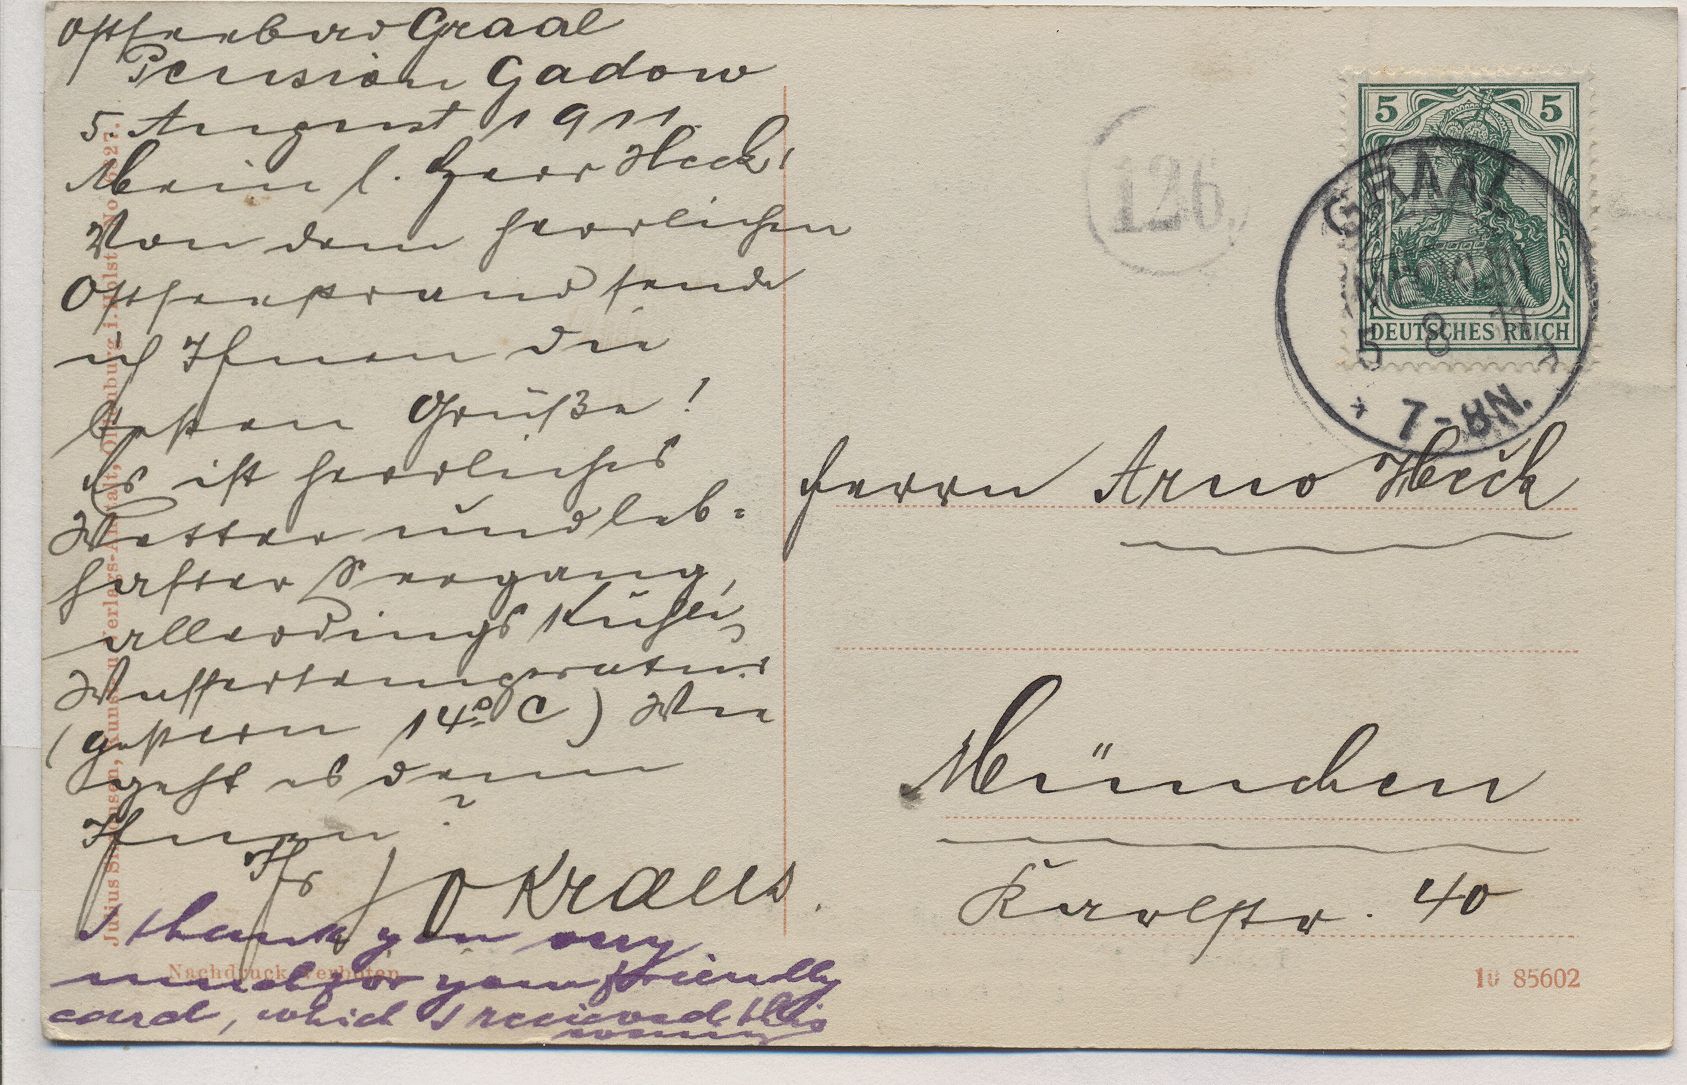 Ostseebad Graal
Pension Gadow
5. August 1911.
Mein l. Herr Heck!
Von dem herrlichen
Ostseestrand sende
ich Ihnen die
besten Grüße!
Es ist herrliches
Wetter und leb-
hafter Seegang,
allerdings kühle
Wassertemperatur
(gestern 14° C) Wie
geht es denn
Ihnen?
Ihr Jo Kraus.
I thank you very
much for your friendly
card, which I recieved this
Nachdruck verboten
Julius Simonsen, Kunst- u. Verlags-Anstalt, Oldenburg i. Holst. No.
126.
5 5
DEUTSCHES REICH
GRAAL
5 8 11
7-8N.
Herrn Arno Heck
München
Karlstr. 40
10 85602